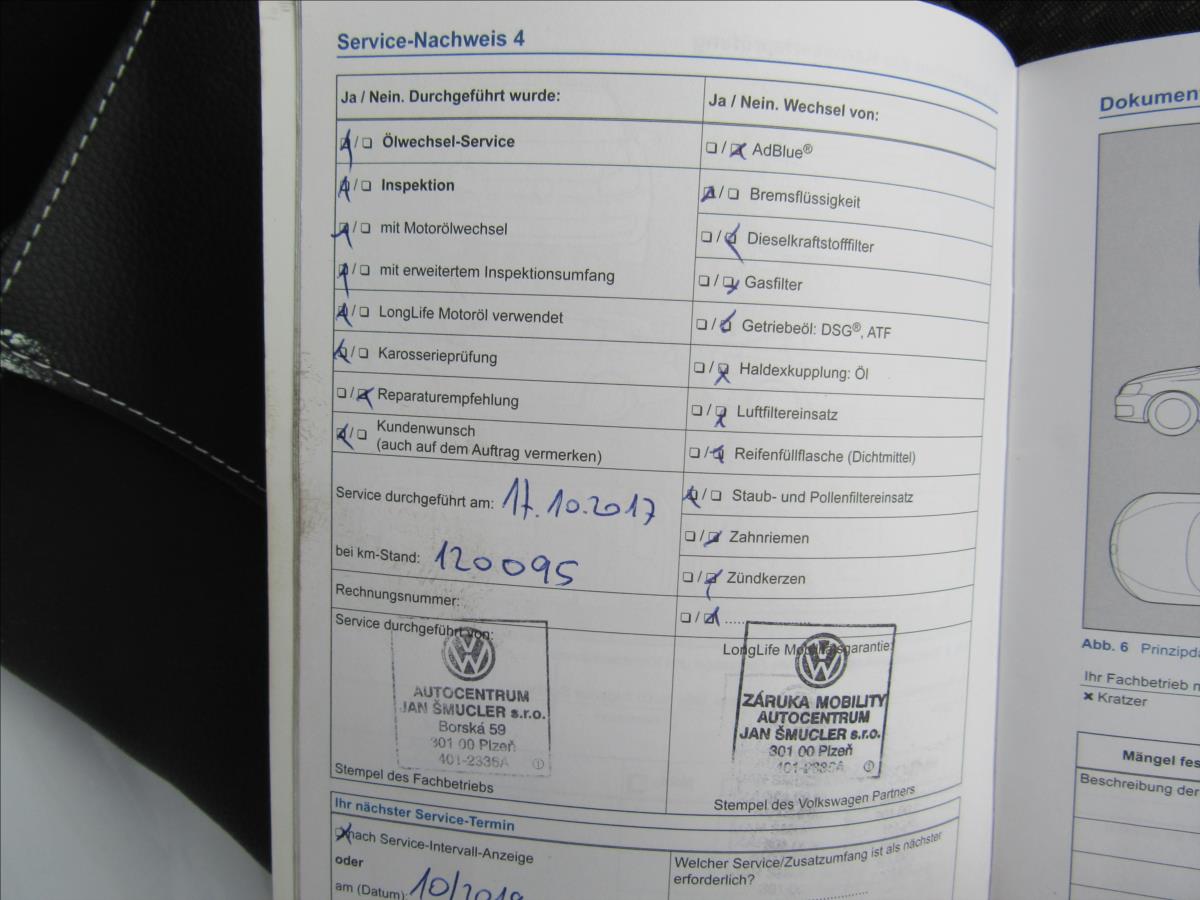 Service-Nachweis 4
Ja / Nein. Durchgeführt wurde:
Ölwechsel-Service
Inspektion
mit Motorölwechsel
mit erweitertem Inspektionsumfang
LongLife Motoröl verwendet
Karosserieprüfung
Reparaturempfehlung
Kundenwunsch
(auch auf dem Auftrag vermerken)
Service durchgeführt am: 17.10.2017
bei km-Stand: 120095
Rechnungsnummer:
Service durchgeführt von:
AUTOCENTRUM
JAN ŠMUCLER s.r.o.
Borská 59
301 00 Plzeň
401-2336A
Stempel des Fachbetriebs
Ja / Nein. Wechsel von:
AdBlue®
Bremsflüssigkeit
Dieselkraftstofffilter
Gasfilter
Getriebeöl: DSG®, ATF
Haldexkupplung: Öl
Luftfiltereinsatz
Reifenfüllflasche (Dichtmittel)
Staub- und Pollenfiltereinsatz
Zahnriemen
Zündkerzen
LongLife Mobilitätsgarantie:
VW
ZÁRUKA MOBILITY
AUTOCENTRUM
JAN ŠMUCLER s.r.o.
301 00 Plzeň
Stempel des Volkswagen Partners
Ihr nächster Service-Termin
nach Service-Intervall-Anzeige
oder
am (Datum):
Welcher Service/Zusatzumfang ist als nächster
erforderlich?
Abb. 6
Ihr Fachbetrieb
Kratzer
Beschreibung der